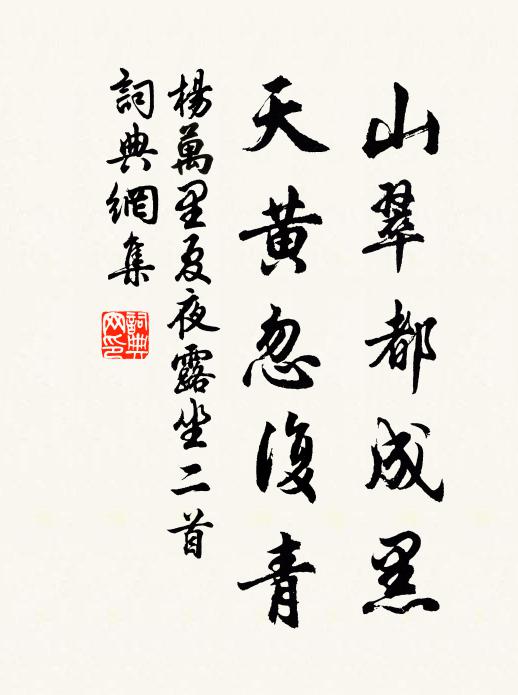 山翠都成黑
天黄忽復青
楊萬里夏夜露坐二首
詞典網集
詞典
网印